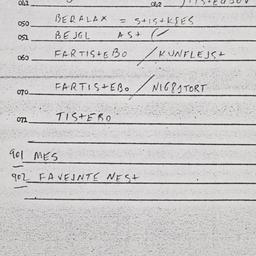 050 BERALAX = S+IS+KSES
051 BEJGL AS+
060 FARTIS+EBO / KUNFLEJS+
070 FARTIS+EBO / NIGRSTORT
071 TIS+ERO
901 MES
902 FAVEJNTE NES+